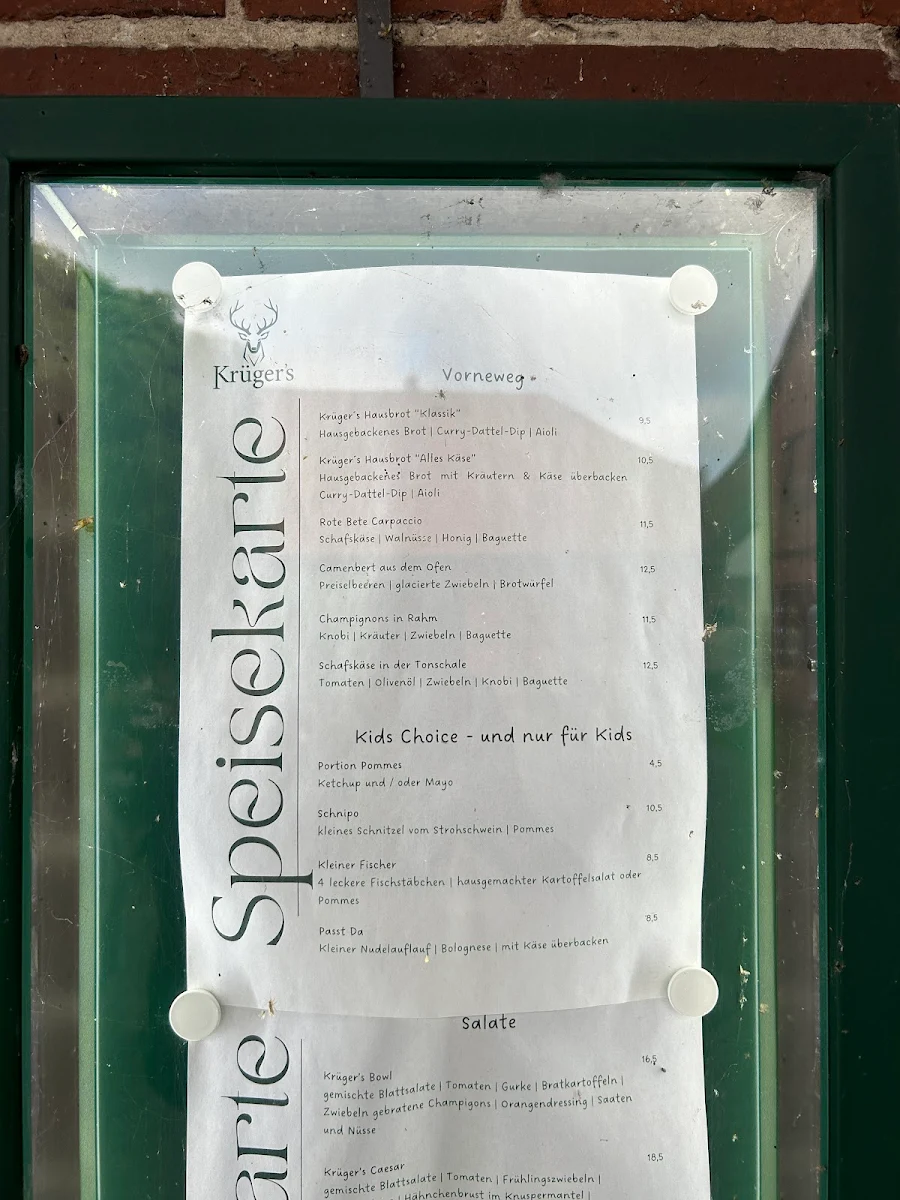 Krüger's
Speisekarte
Vorneweg
Krüger's Hausbrot "Klassik" 9,5
Hausgebackenes Brot | Curry-Dattel-Dip | Aioli
Krüger's Hausbrot "Alles Käse" 10,5
Hausgebackenes Brot mit Kräutern & Käse überbacken
Curry-Dattel-Dip | Aioli
Rote Bete Carpaccio 11,5
Schafskäse | Walnüsse | Honig | Baguette
Camenbert aus dem Ofen 12,5
Preiselbeeren | glacierte Zwiebeln | Brotwürfel
Champignons in Rahm 11,5
Knobi | Kräuter | Zwiebeln | Baguette
Schafskäse in der Tonschale 12,5
Tomaten | Olivenöl | Zwiebeln | Knobi | Baguette
Kids Choice - und nur für Kids
Portion Pommes 4,5
Ketchup und / oder Mayo
Schnipo 10,5
kleines Schnitzel vom Strohschwein | Pommes
Kleiner Fischer 8,5
4 leckere Fischstäbchen | hausgemachter Kartoffelsalat oder
Pommes
Passt Da 8,5
Kleiner Nudelauflauf | Bolognese | mit Käse überbacken
arte
Salate
Krüger's Bowl 16,5
gemischte Blattsalate | Tomaten | Gurke | Bratkartoffeln |
Zwiebeln gebratene Champigons | Orangendressing | Saaten
und Nüsse
Krüger's Caesar 18,5
gemischte Blattsalate | Tomaten | Frühlingszwiebeln |
| Hähnchenbrust im Knuspermantel |